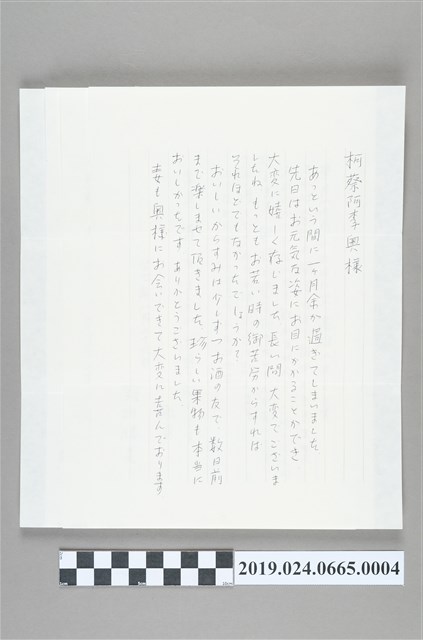 柯蔡阿李奥様
あっという間に一ヶ月余が過ぎてしまいました
先日はお元気な姿にお目にかかることができ
大変に嬉しく存じました 長い間 大変でございま
したね もっともお若い時の御苦労からすれば
それほどでもなかったでしょうか?
おいしいからすみは少しずつお酒の友で 数日前
まで楽しませて頂きました 珍らしい果物も本当に
おいしかったです ありがとうございました
妻も奥様にお会いできて大変に喜んでおります
2019.024.0665.0004